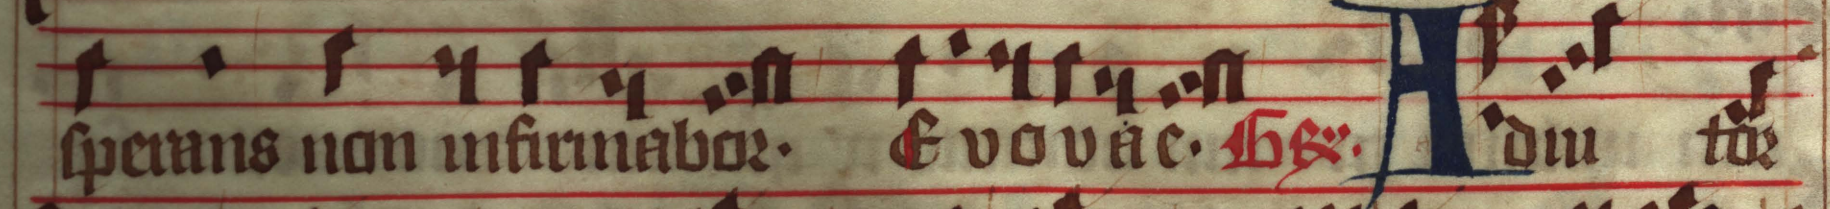 sperans non infirmabor. Evovae. Gr. Adiu tor